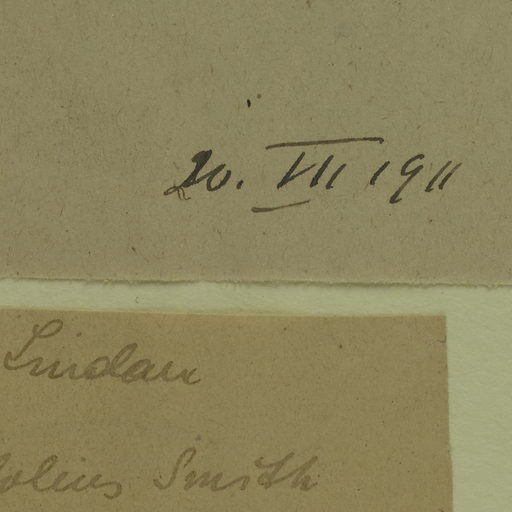 20. VII 1911
Lindau
Smith